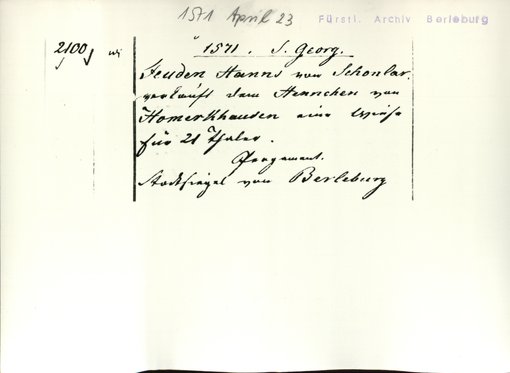 1571 April 23 Fürstl. Archiv Berleburg
2100
1571. S. Georg.
Hanns von Schonlar.
verkauft dem Hennchen von
Homerkhausen eine Wiese
für 21 Thaler.
Pergament.
Stadtsiegel von Berleburg